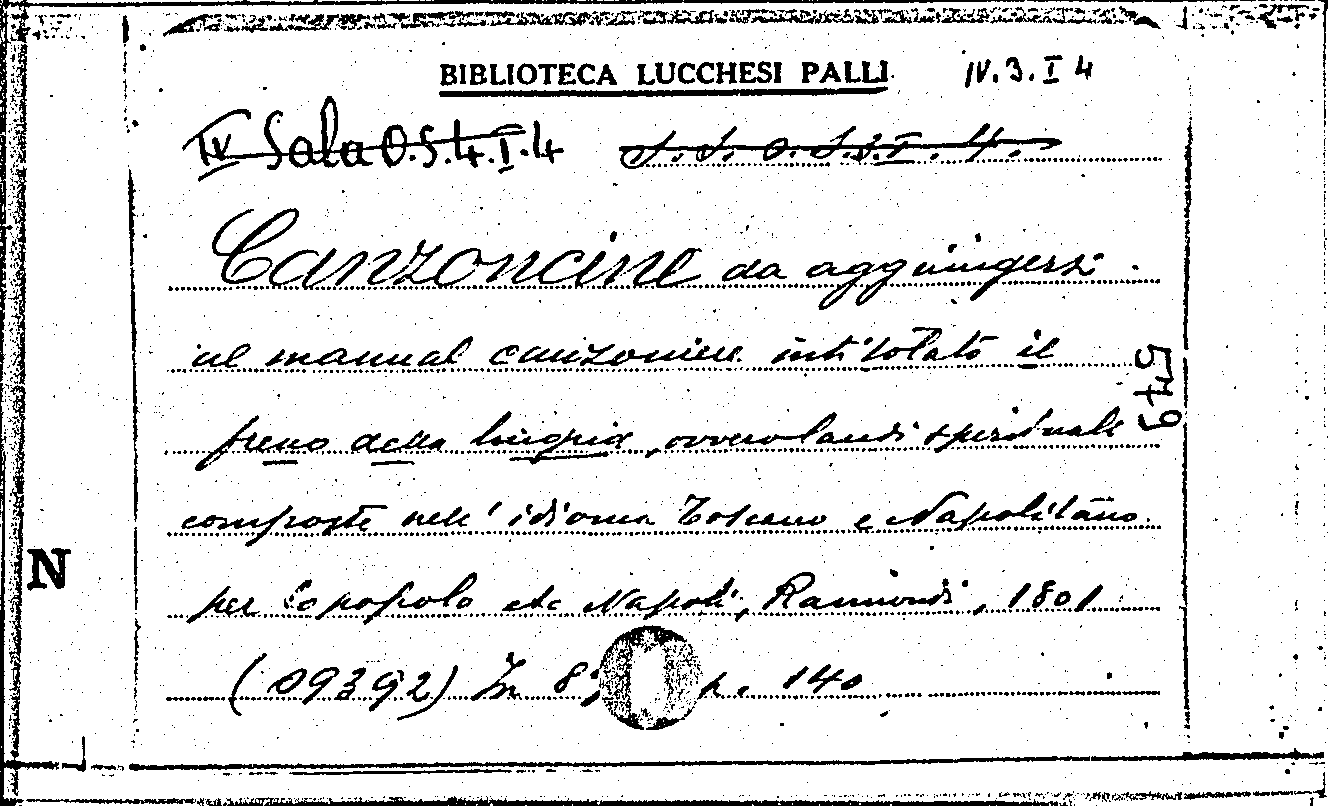 BIBLIOTECA LUCCHESI PALLI IV.3.I 4
IV Sala O.S.4.I.4 S.S. O. S.3.I. 4.
Canzoncine da aggiungersi
al manual canzoniere intitolato il
freno della lingua, ovvero laudi spirituale
composte nell'idioma Toscano e Napolitano
per lo popolo etc Napoli, Raimondi, 1801
(09392) In 8°, p. 140
549
N